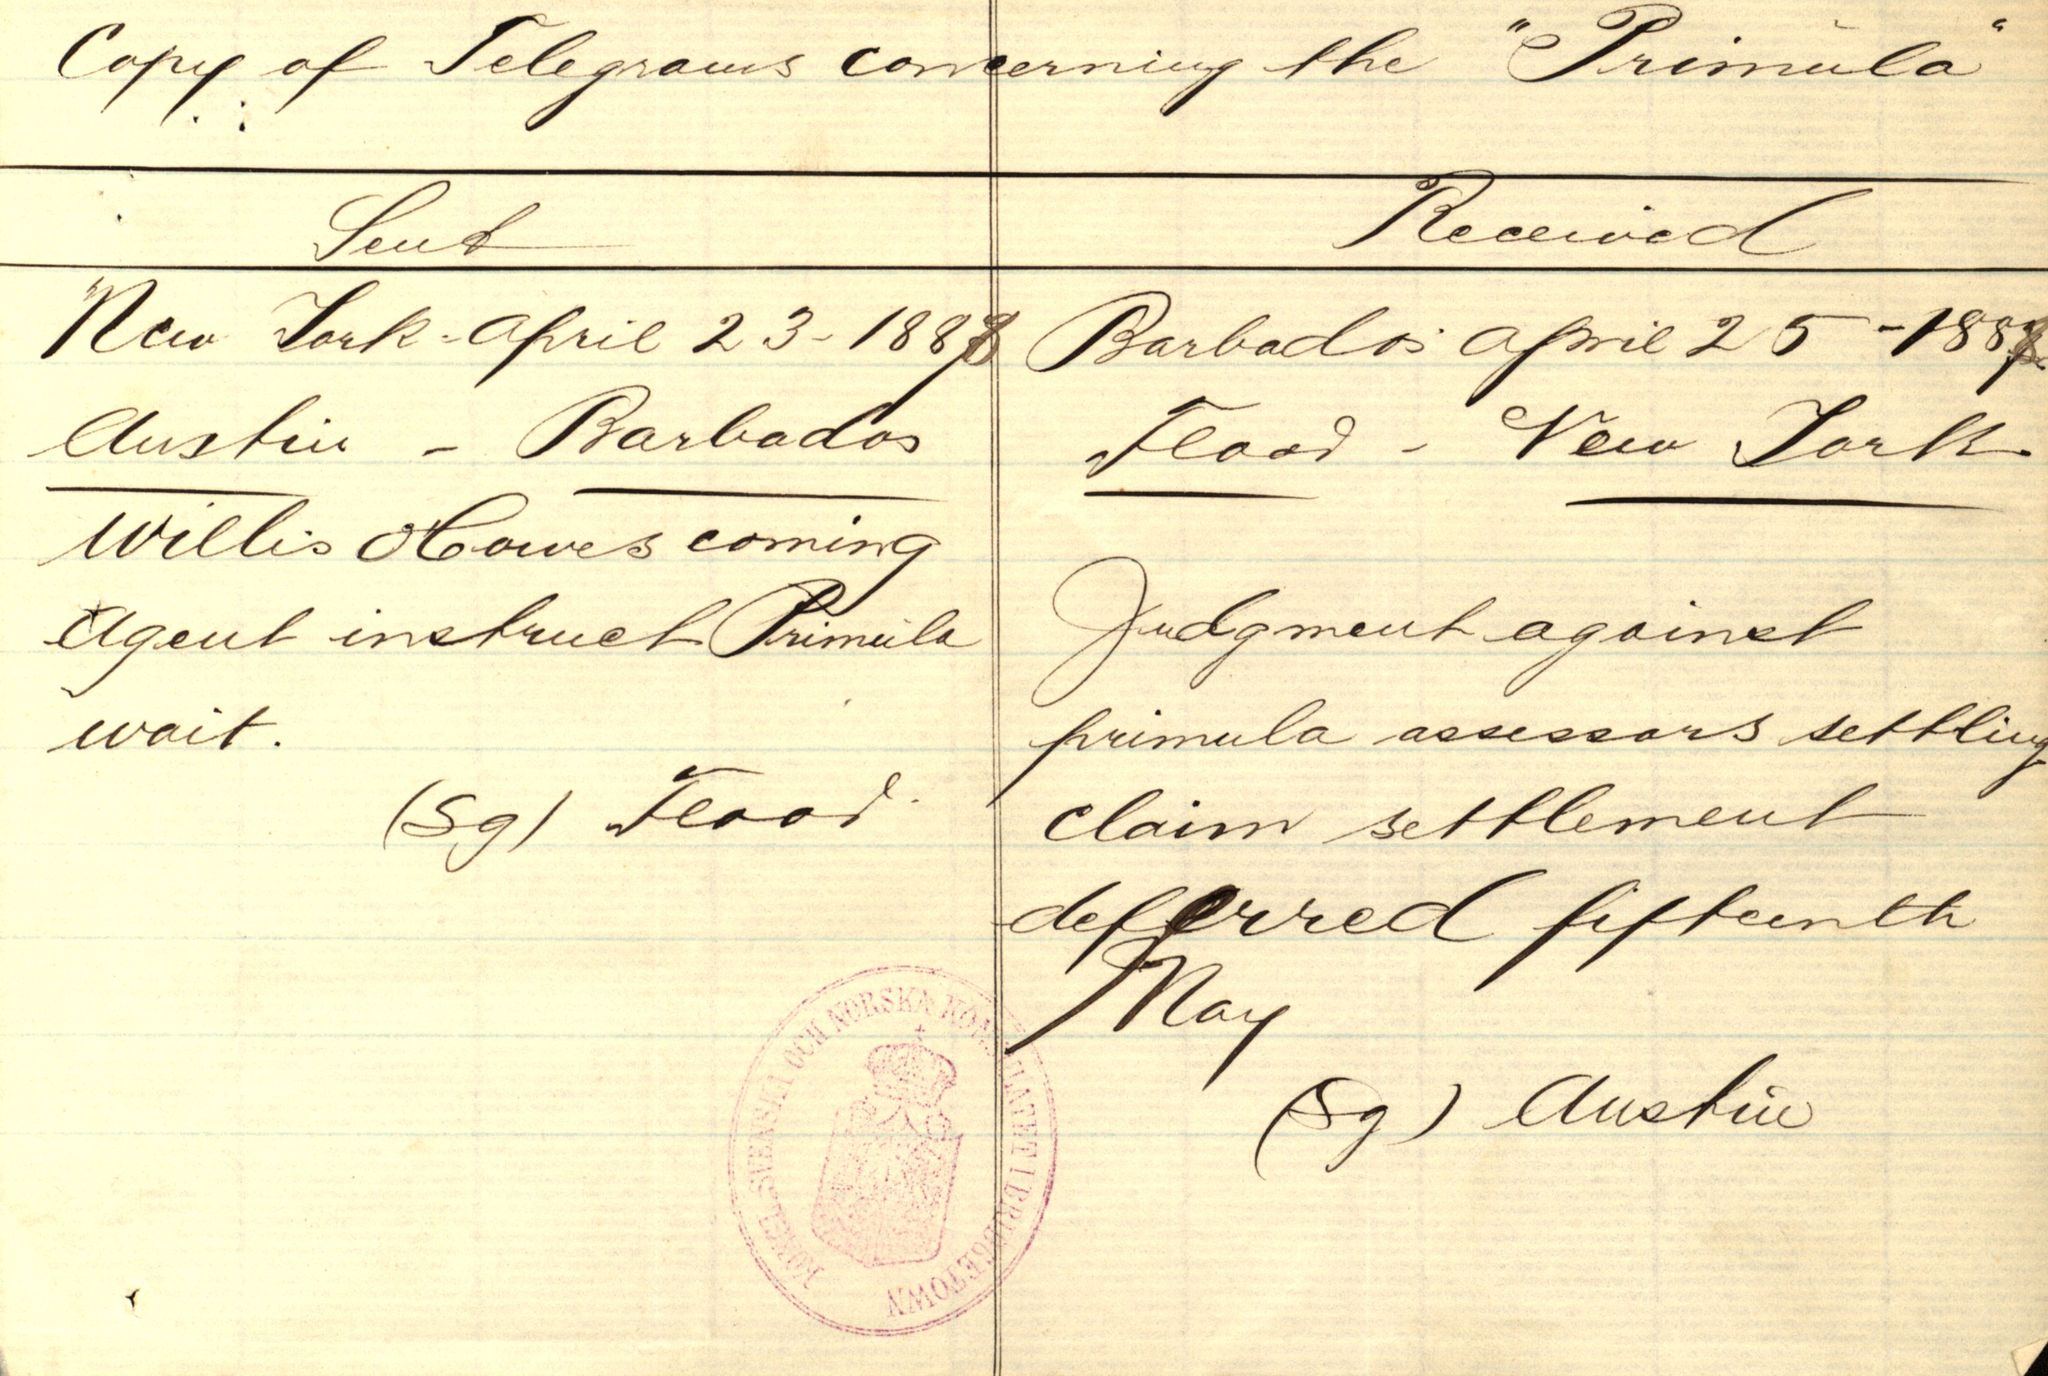 Copy of Telegrams concerning the "Primula"
Sent
New York - April 23 - 1888
Austin - Barbados
Willis Howes coming
Agent instruct Primula
wait.
(Sg) Flood.
Received
Barbados April 25 - 1888
Flood - New York
Judgment against
primula assessors settling
claim settlement
deferred fifteenth
May
(Sg) Austin
KONGL. SVENSKA OCH NORSKA KONSULATET I BRIDGETOWN